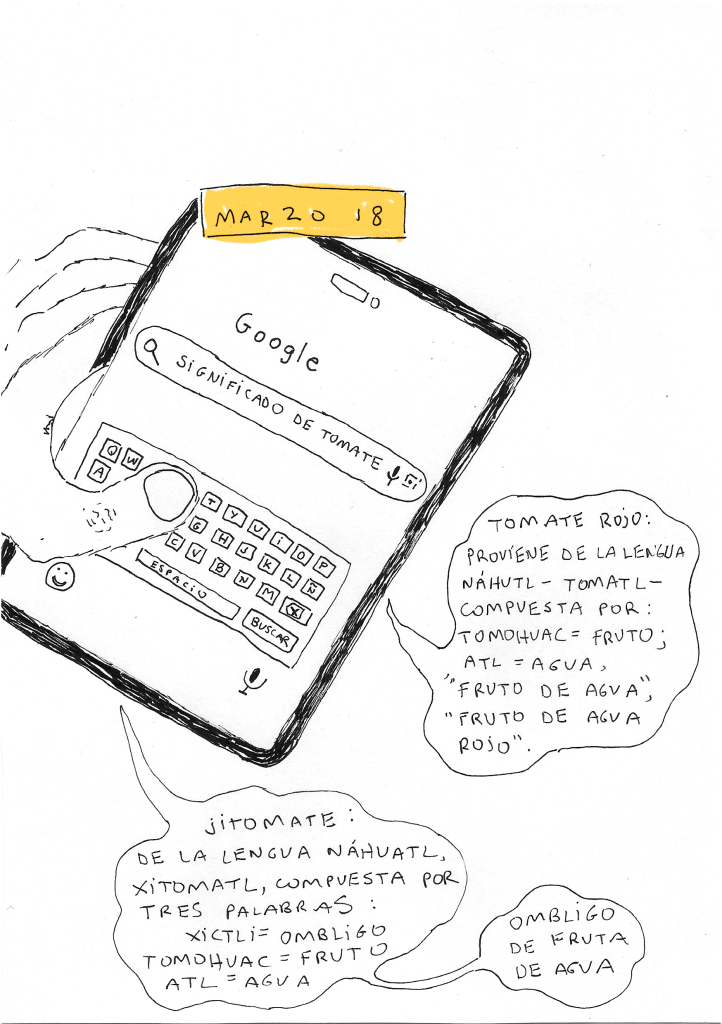 MARZO 18
Google
SIGNIFICADO DE TOMATE
Q W
A
T Y U I O P
G H J K L Ñ
C V B N M X
ESPACIO
BUSCAR
TOMATE ROJO:
PROVIENE DE LA LENGUA
NÁHUTL - TOMATL -
COMPUESTA POR:
TOMOHUAC = FRUTO;
ATL = AGUA,
"FRUTO DE AGUA",
"FRUTO DE AGUA
ROJO".
JITOMATE:
DE LA LENGUA NÁHUATL,
XITOMATL, COMPUESTA POR
TRES PALABRAS:
XICTLI = OMBLIGO
TOMOHUAC = FRUTO
ATL = AGUA
OMBLIGO
DE FRUTA
DE AGUA